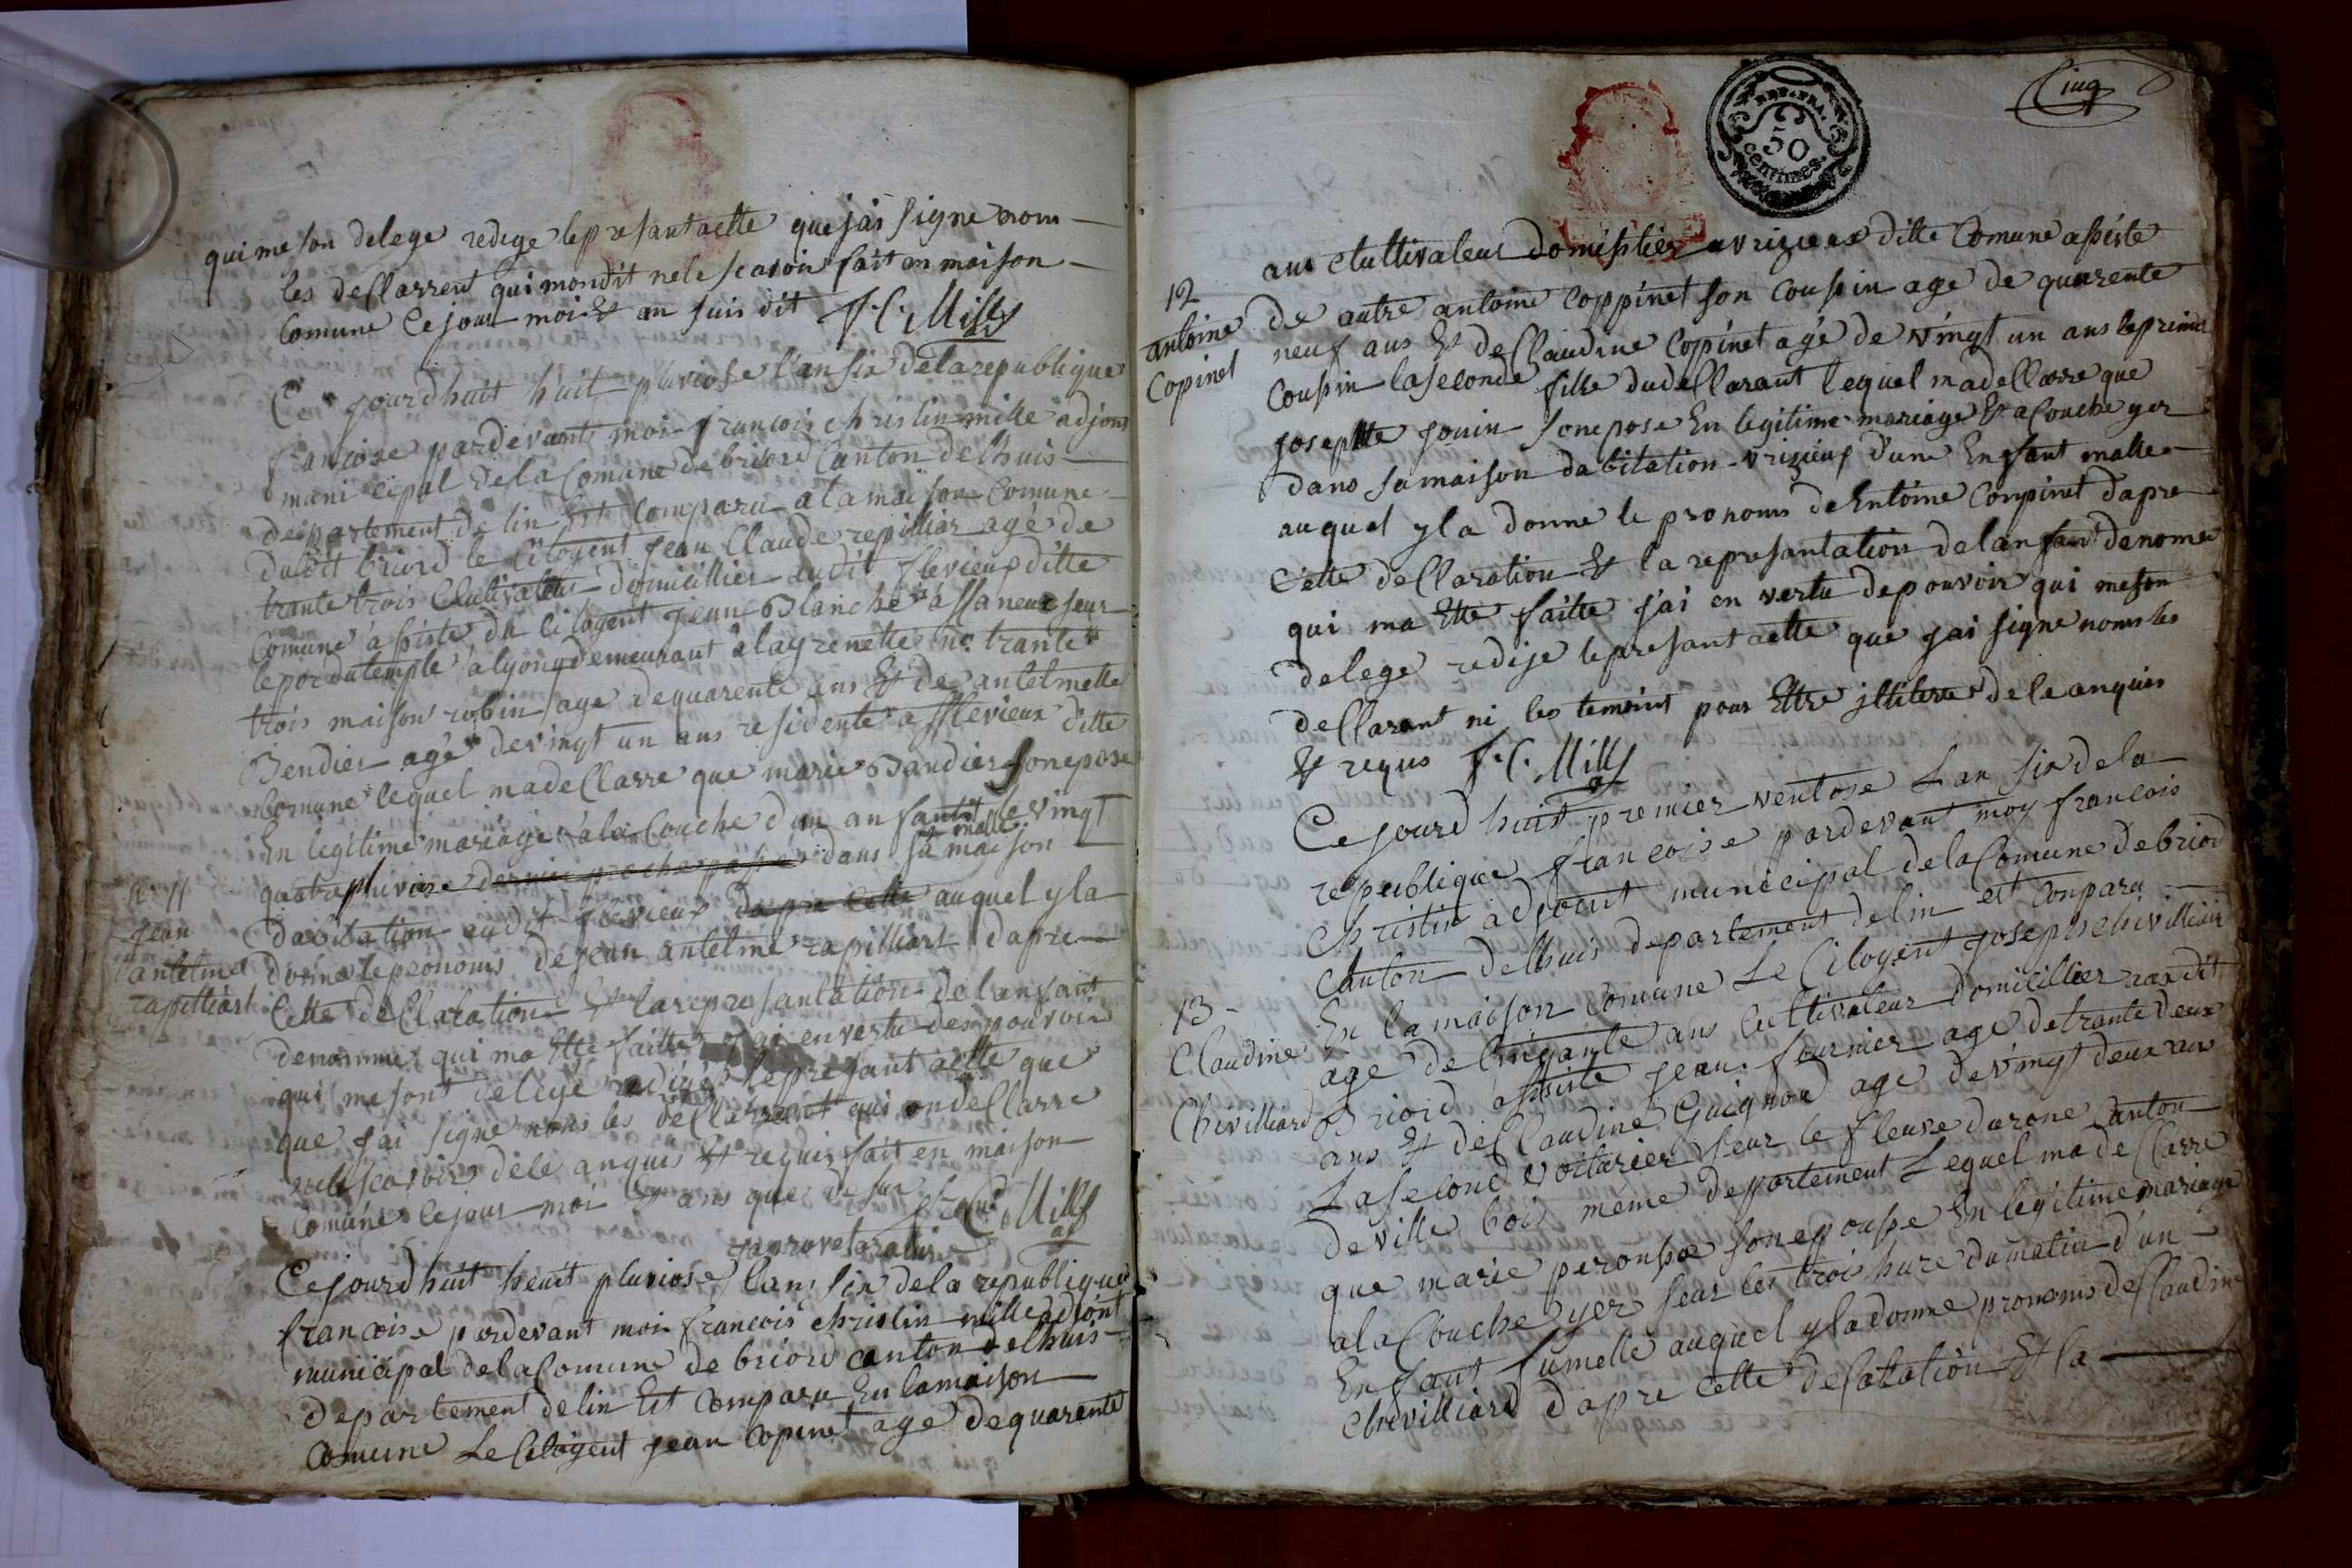 qui me son delege redege le presant actte que jai signe nom
les deClarrent qui mondit nele scavoir fait en maison
Comune Ce jour moi & an suis dit F. C. Mille
Ce jourdhuit huit pluviose l'an six dela republique
francoise pardevant moi francois christin mille adjoins
municipal dela Comune de briord Canton delhuis
departement de lin Est Comparu a la maison Comune
dudit briord le Citoyent jean Claude repilliar agé de
trante trois Cultivateur domicillier audit flevieux ditte
Comune a siste du citoyent jean Blanche affaneur seur
le por du temple a lyon demeurant a lagrenette no. trante
trois maison robin age de quarente ans & de antelmette
Bendier agé de vingt un ans residente a fflevieux ditte
Comune lequel ma deClarre que marie Bandier son epose
En legitime mariage a la Couche d'un anfantt le vingt
malle
quatre pluviose dernier proche passe dans sa maison
N. 11
jean
antelme
rapilliart
dabitation audit flevieux dapre cette auquel yla
donne le pronoms de jean antelme rapilliart dapre
Cette deClaration & la represantation de lanfant
denomme qui ma Ette faitte jai en vertu des pouvoir
qui me sont delegé redigés le presant actte que
que jai signe nons les deClarrent qui on deClarre
nele scavoir dele anquis & requis fait en maison
Comune le jour moi & ans que desur F. C. Mille
japrove la ratur
Ce jourdhuit heuit pluviose l'ans six dela republique
francoise pardevant moi francois christin mille adjoint
municipal dela Comune de briord canton delhuis
departement delin Est Comparu En la maison
Comune Le Citoyent jean Copinet age de quarente
Cinq
REP. FRA.
50
centimes.
ans Cultivateur domicilier a vrizieux ditte Comune asiste
12
antoine
Copinet
de autre antoine Coppinet son Cousin age de quarente
neuf ans & de Claudine Coppinet agé de vingt un ans le primier
Cousin la seconde fille dudeClarant lequel ma deClarre que
josephtte jouin son epose En legitime mariage & a Couche yer
dans sa maison dabitation vrizieux d'une Enfant malle
auquel yla donne le pronoms de Entoine Conpinet dapre
Cette deClaration & la represantation de lanfant denomer
qui ma Ette faitte jai en vertu de pouvoir qui me son
delege redije le presant actte que jai signe nom les
deClarant ni les temoint pour Ettre illiterre dele anquis
& requis F. C. Mille
Ce jourdhuit premier ventose Lan six dela
republique francoise pardevant moy francois
christin adjoint municipal dela Comune de briord
Canton delhuis departement delin est Conparu
13
Claudine
Chivilliard
En la maison Comune Le Citoyent joseph chivilliair
age de Cinqante ans Cultivateur domicillier raxdit
Briord assiste jean fournier age de trante deux
ans & de Claudine Guignon age de vingt deux ans
La second voiturier seur le fleuve durone Canton
de ville bois meme departement Lequel ma deClarre
que marie peronse son epouse En legitime mariage
a la Couche yer seur les trois hure du matin d'un
Enfant fumelle auquel yla donne pronoms de Claudine
Chivilliard dapre cette deClaration & la